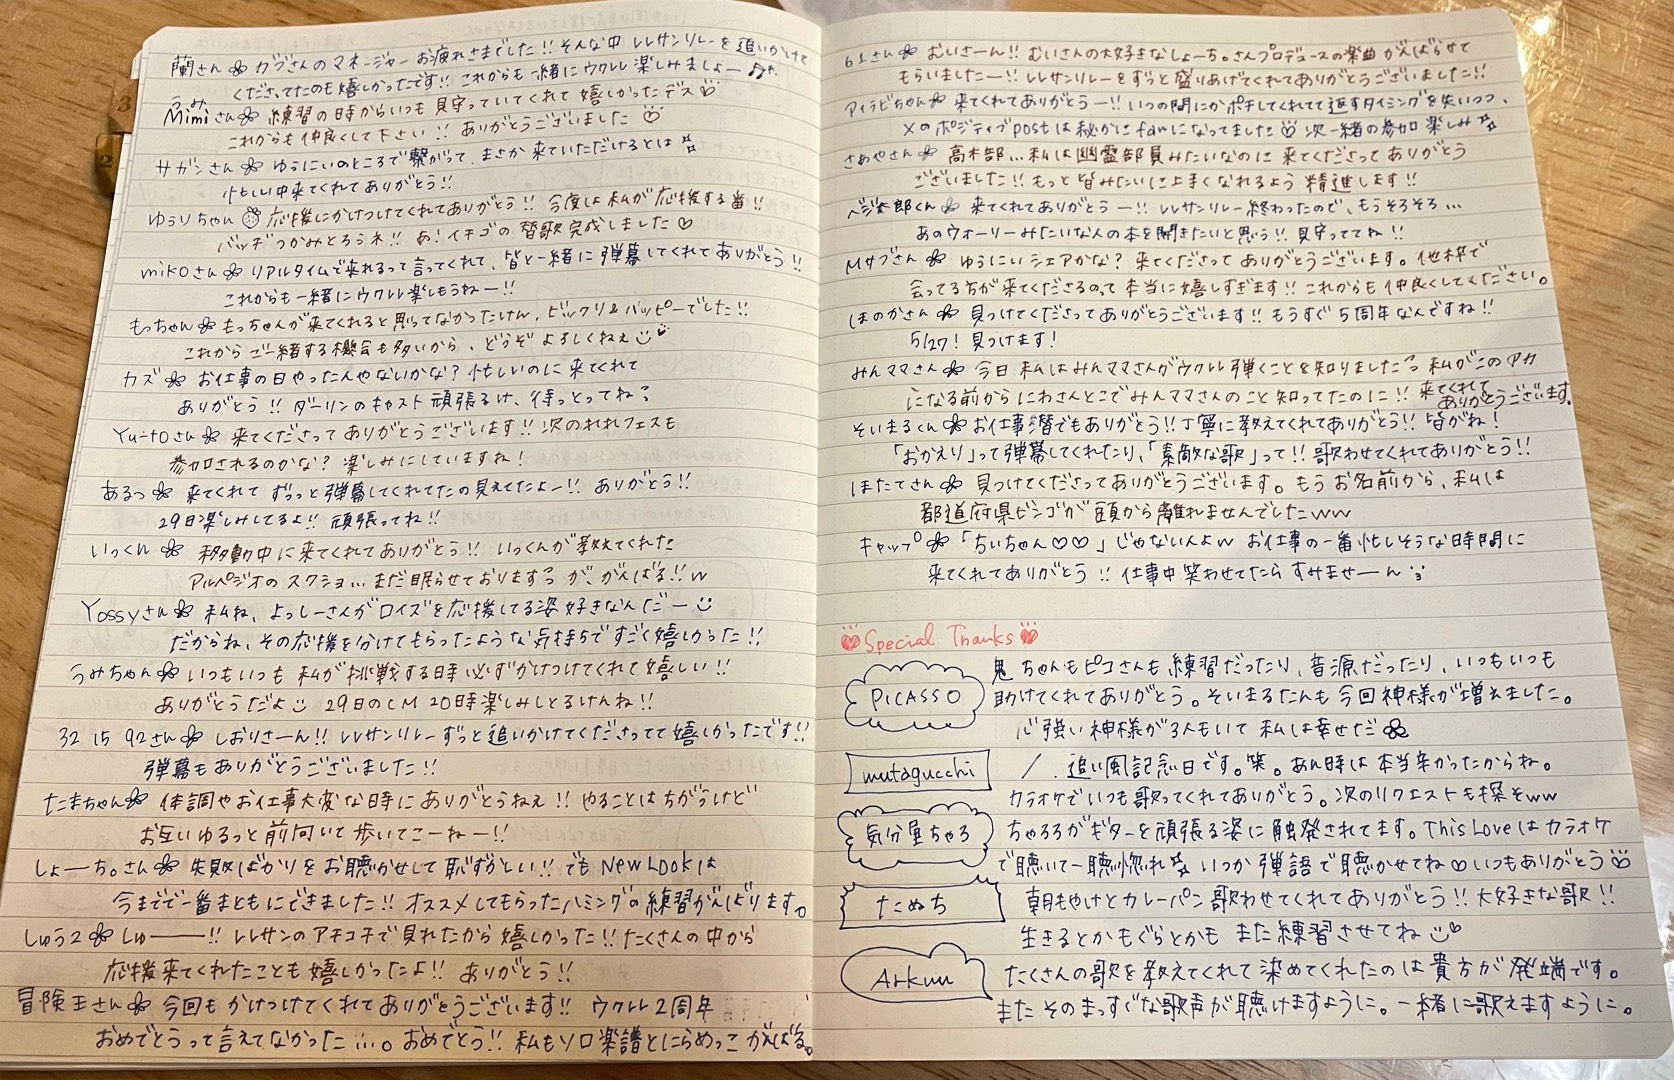 蘭さん カブさんのマネージャーお疲れさまでした!! そんな中 レレサンリレーを追いかけて
くださってたのも嬉しかったです!! これからも一緒にウクレレ楽しみましょー♬
うみ
Mimiさん 練習の時からいつも見守っていてくれて嬉しかったデス♡
これからも仲良くして下さい!! ありがとうございました♡
サガンさん ゆうにいのところで繋がって、まさか来ていただけるとは
忙しい中来てくれてありがとう!!
ゆうりちゃん 応援にかけつけてくれてありがとう!! 今度は私が応援する番!!
バッヂつかみとろうネ!! あ!イチゴの替歌完成しました♡
mikoさん リアルタイムで来れるって言ってくれて、皆と一緒に弾幕してくれてありがとう!!
これからも一緒にウクレレ楽しもうねー!!
もっちゃん もっちゃんが来てくれると思ってなかったけん、ビックリ&ハッピーでした!!
これからご一緒する機会も多いから、どうぞよろしくねぇ
カズ お仕事の日やったんやないかな? 忙しいのに来てくれて
ありがとう!! ダーリンのキャスト頑張るけ、待っとってね?
Yu-toさん 来てくださってありがとうございます!! 次のれれフェスも
参加されるのかな? 楽しみにしていますね!
あるっ 来てくれてずっと弾幕してくれてたの見えてたよー!! ありがとう!!
29日楽しみしてるよ!! 頑張ってね!!
いっくん 移動中に来てくれてありがとう!! いっくんが教えてくれた
アルペジオのスクショ…まだ眠らせておりますっ が、がんばる!!w
Yossyさん 私ね、よっしーさんがロイズを応援してる姿好きなんだー
だからね、その応援を分けてもらったような気持ちですごく嬉しかった!!
うみちゃん いつもいつも私が挑戦する日時必ずかけつけてくれて嬉しい!!
ありがとうだよ 29日のCM 20時楽しみしとるけんね!!
32 15 92さん しおりさーん!! レレサンリレーずっと追いかけてくださってて嬉しかったです!!
弾幕もありがとうございました!!
たまちゃん 体調やお仕事大変な時にありがとうねぇ!! やることはちがうけど
お互いゆるっと前向いて歩いてこーねー!!
しょーち。さん 失敗ばかりをお聴かせして恥ずかしい!! でも New Lookは
今までで一番まともにできました!! オススメしてもらったハミングの練習がんばります。
しゅう2 しゅー!! レレサンのアモコチで見れたから嬉しかった!! たくさんの中から
応援来てくれたことも嬉しかったよ!! ありがとう!!
冒険王さん 今回もかけつけてくれてありがとうございます!! ウクレレ2周年
おめでとうって言えてなかった…。おめでとう!! 私もソロ楽譜とにらめっこがんばる。
61さん むいさーん!! むいさんの大好きなしょーち。さんプロデュースの楽曲がんばらせて
もらいましたー!! レレサンリレーをずっと盛りあげてくれてありがとうございました!!
アイラビちゃん 来てくれてありがとうー!! いつの間にかポチしてくれてて返すタイミングを失いつつ、
Xのポジティブpostは秘かにfanになってました♡ 次一緒の参加楽しみ
さあやさん 高木部…私は幽霊部員みたいなのに来てくださってありがとう
ございました!! もっと皆みたいに上手くなれるよう精進します!!
ベジ太郎くん 来てくれてありがとうー!! レレサンリレー終わったので、もうそろそろ…
あのウォーリーみたいな人の本を開きたいと思う!! 見守っててね!!
Mサブさん ゆうにいシェアかな? 来てくださってありがとうございます。他枠で
会ってる方が来てくださるのって本当に嬉しすぎます!! これからも仲良くしてください。
ほのかさん 見つけてくださってありがとうございます!! もうすぐ5周年なんですね!!
5/27! 見つけます!
みんママさん 今日私はみんママさんがウクレレ弾くことを知りましたっ 私がこのアカ
になる前からにわさんとこでみんママさんのこと知ってたのに!! 来てくれて
ありがとうございます。
そいまるくん お仕事潜でもありがとう!! 丁寧に教えてくれてありがとう!! 皆がね!
「おかえり」って弾幕してくれたり、「素敵な歌」って!! 歌わせてくれてありがとう!!
ほたてさん 見つけてくださってありがとうございます。もうお名前から、私は
都道府県ビンゴが頭から離れませんでしたww
キャップ 「ちぃちゃん♡♡」じゃないんよw お仕事の一番忙しそうな時間に
来てくれてありがとう!! 仕事中笑わせてたらすみませーん
Special Thanks
PICASSO
鬼ちゃんもピコさんも練習だったり、音源だったり、いつもいつも
助けてくれてありがとう。そいまるたんも今回神様が増えました。
心強い神様が3人もいて私は幸せだ
mutagucchi
追い風記念日です。笑。あん時は本当辛かったからね。
カラオケでいつも歌ってくれてありがとう。次のリクエストも探そww
気分屋ちゃろ
ちゃろろがギターを頑張る姿に触発されてます。This Loveはカラオケ
で聴いて一聴惚れ いつか弾語で聴かせてね♡いつもありがとう♡
たぬち
朝もやけとカレーパン歌わせてくれてありがとう!! 大好きな歌!!
生きるとかもぐらとかもまた練習させてね
Arkuu
たくさんの歌を教えてくれて染めてくれたのは貴方が発端です。
またそのまっすぐな歌声が聴けますように。一緒に歌えますように。